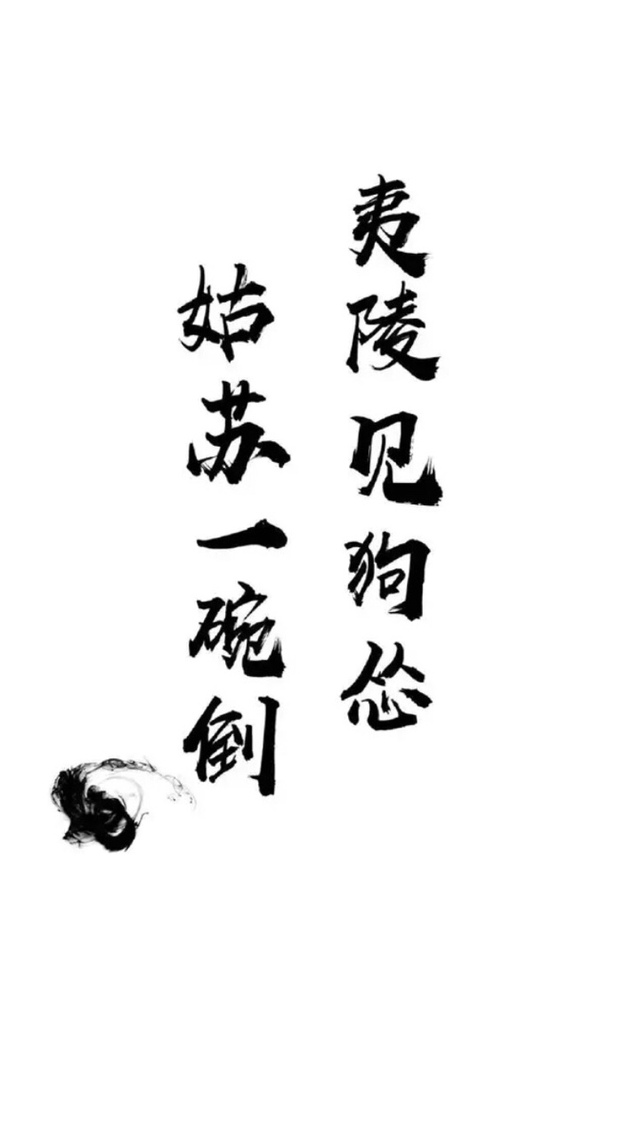 夷陵见狗怂
姑苏一碗倒